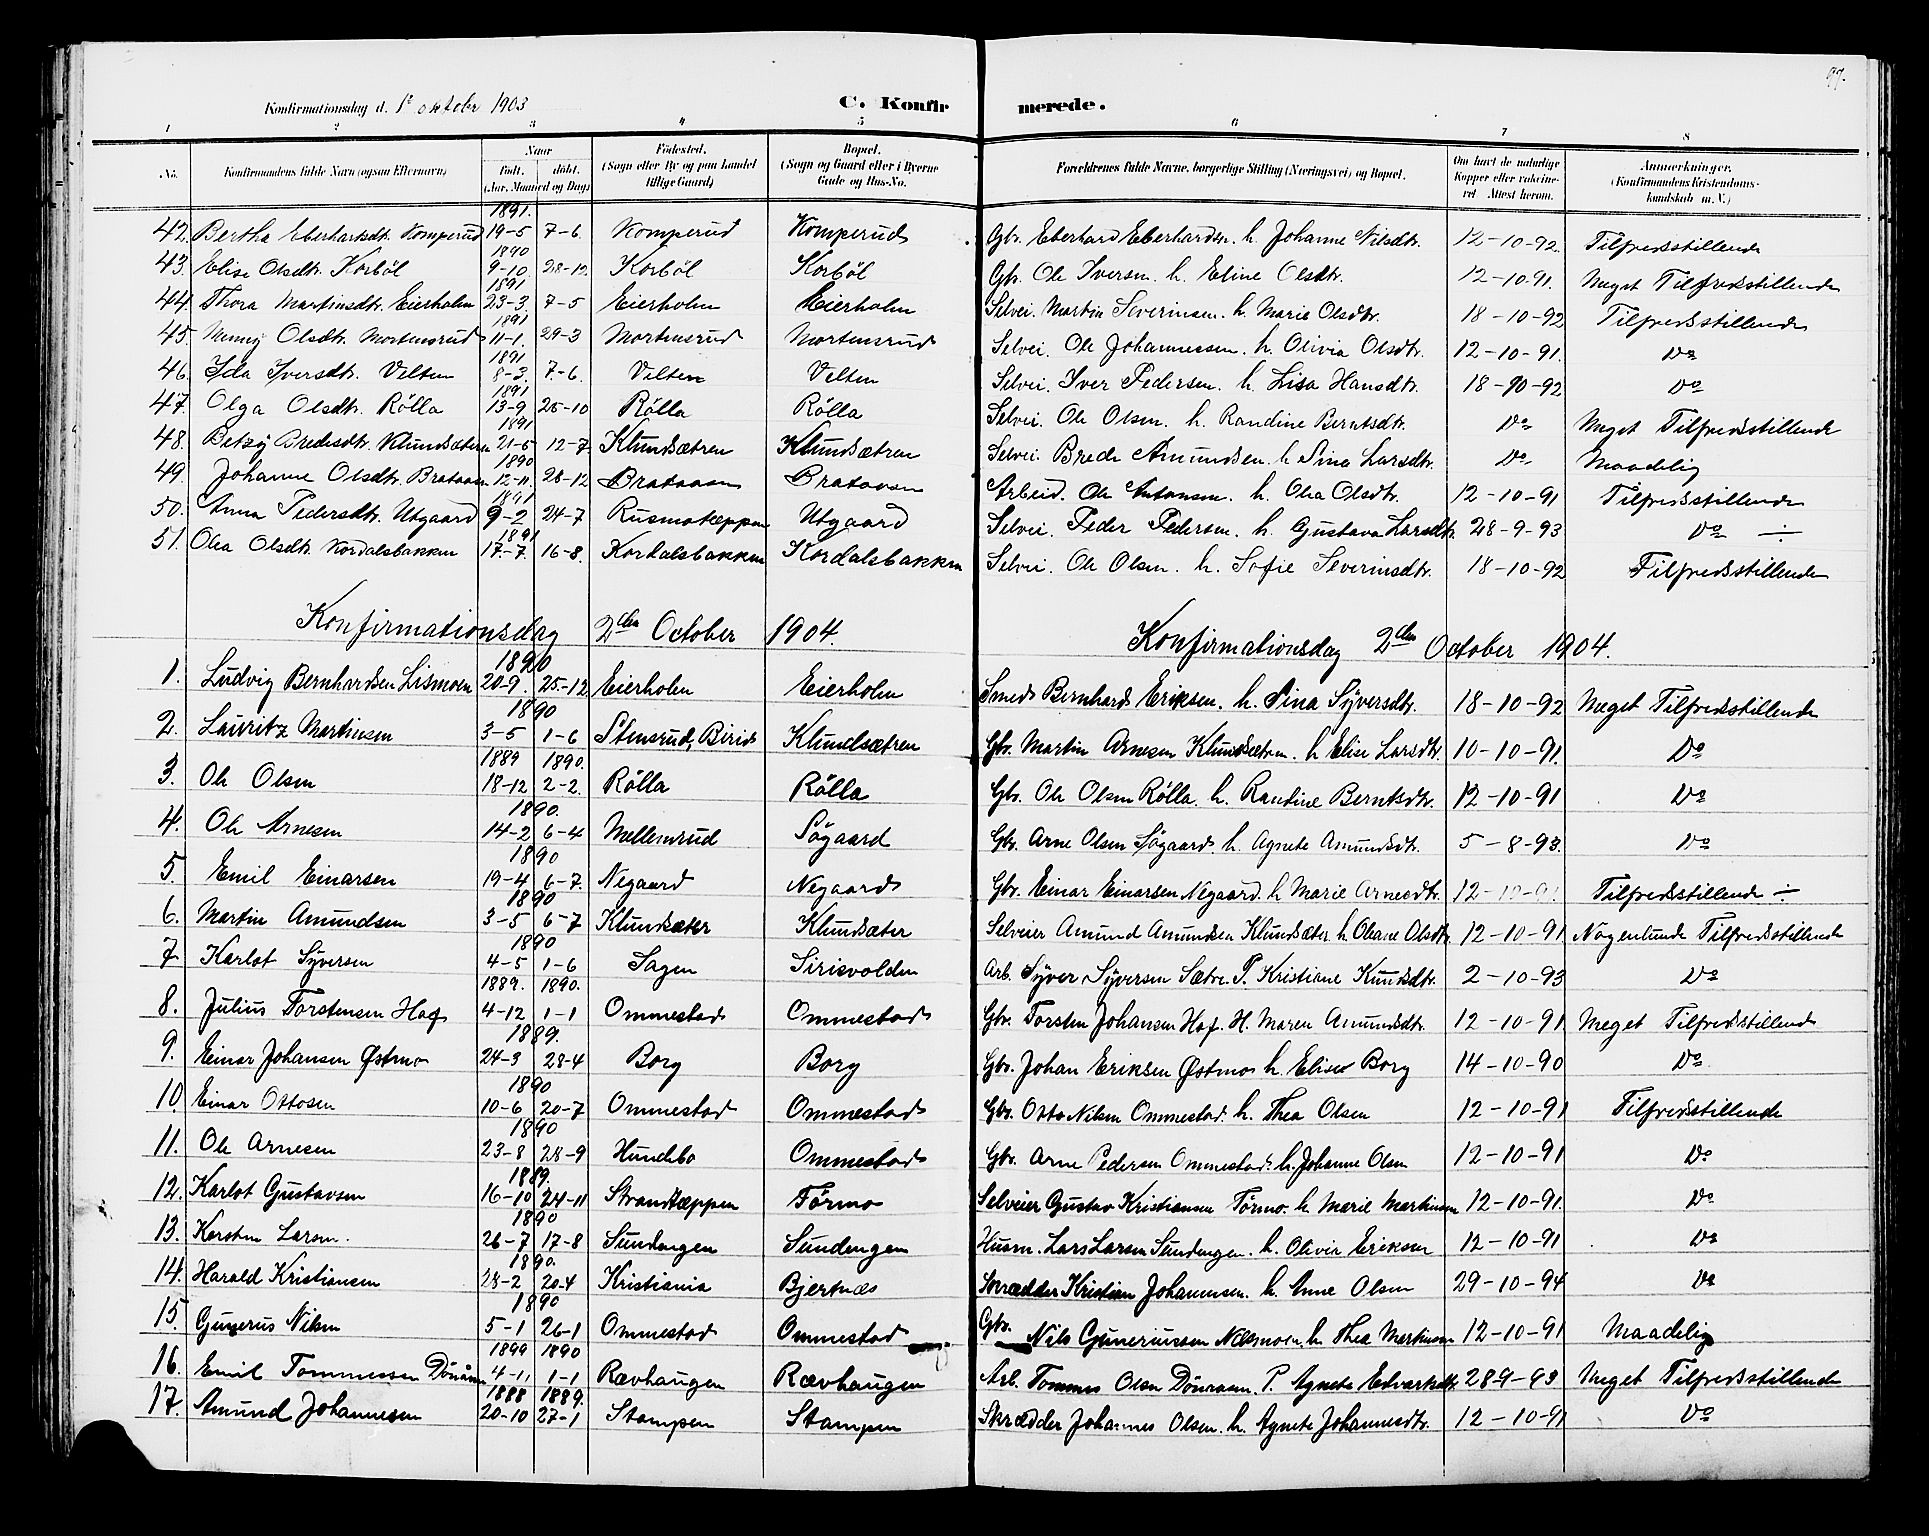 97.
Konfirmationsdag d. 1ste oktober 1903 C. Konfirmerede.
1 2 3 4 5 6 7 8
No. Konfirmandens fulde Navn (ogsaa Efternavn) Naar Født. døbt. (Aar, Maaned og Dag) Fødested. (Sogn eller By og paa Landet tillige Gaard) Bopæl. (Sogn og Gaard eller i Byerne Gade og Hus-No. Forældrenes fulde Navne, borgerlige Stilling (Næringsvei) og Bopæl. Om havt de naturlige Kopper eller vaccineret. Attest herom. Anmærkninger. (Konfirmandens Kristendomskundskab m. V.)
42. Bertha Eberhartsdt. Komperud 1891. 19-5 7-6 Komperud Komperud Gbr. Eberhard Eberhardsn. h. Johanne Nilsdtr. 12-10-92. Tilfredsstillende
43. Elise Olsdtr. Korbøl 1890 9-10. 28-12. Korbøl Korbøl Gbr. Ole Iversen. h. Eline Olsdtr. 12-10-91. Meget Tilfredsstillende
44. Thora Martinsdtr. Eierholm 1891 23-3. 7-5 Eierholm Eierholm Selvei. Martin Severinsen. h. Marie Olsdtr. 18-10-92 Tilfredsstillende
45. Menny Olsdtr. Mortensrud 1891 11-1. 29-3 Mortensrud Mortensrud Selvei. Ole Johannessen. h. Olivia Olsdtr. 12-10-91. Do
46. Ida Iversdtr. Velten 1891 8-3. 7-6. Velten Velten Selvei. Iver Pedersen. h. Lisa Hansdtr. 18-10-92 Do
47. Olga Olsdtr. Rölla 1891 13-9 25-10 Rölla Rölla Selvei. Ole Olsen. h. Randine Berntsdtr. Do Meget Tilfredsstillende
48. Betzy Bredesdtr. Klundsæteren 1891 21-5 12-7 Klundsætren Klundsætren Selvei. Brede Amundsen. h. Sina Larsdtr. Do Maadelig
49. Johanne Olsdtr. Brataasen 1890 12-11. 28-12 Brataasen Brataasen Arbeid. Ole Antonsen. h. Olea Olsdtr. 12-10-91 Tilfredsstillende
50. Anna Pedersdtr. Utgaard 1891 9-2 24-7 Rusmotæppen Utgaard Selvei. Peder Pedersen. h. Gustava Larsdtr. 28-9-93 Do ÷
51. Olea Olsdtr. Kordalsbakken 1891 17-7. 16-8. Kordalsbakken Kordalsbakken Selvei. Ole Olsen. h. Sofie Severinsdtr. 18-10-92 Tilfredsstillende
Konfirmationsdag 2den October 1904. Konfirmationsdag 2den October 1904.
1. Ludvig Bernhardsen Lismoen 1890 20-9. 25-12 Eierholm Eierholm Smed Bernhard Eriksen. h. Sina Syversdtr. 18-10-92 Meget Tilfredsstillende
2. Lauritz Martinsen 1890 3-5 1-6 Stensrud, Birid Klundsætren Gbr. Martin Arnesen Klundsætren. h. Elise Larsdtr. 10-10-91. Do
3. Ole Olsen 1889 1890. 18-12 2-2. Rölla Rölla Gbr. Ole Olsen Rölla. h. Randine Berntsdtr. 12-10-91 Do
4. Ole Arnesen 1890. 14-2 6-4 Mellemrud Søgaard Gbr. Arne Olsen Søgaard. h. Agnete Amundsdtr. 5-8-93. Do
5. Emil Einarsen 1890 19-4 6-7. Negaard Negaard Gbr. Einar Einarsen Negaard. h Marie Arnesdtr. 12-10-91. Tilfredsstillende ÷
6. Martin Amundsen 1890 3-5 6-7 Klundsæter Klundsæter Selveier Amund Amundsen Klundsæter h. Oleane Olsdtr. 12-10-91 Nogenlunde Tilfredsstillende
7 Karlot Syversen 1890 4-5 1-6 Sagen Sirisvolden Arb. Syver Syversen Sætre. P. Kristiane Knudsdtr. 2-10-93 Do
8. Julius Torstensen Hof 1889. 1890. 4-12 1-1 Ommestad Ommestad Gbr. Torsten Johansen Hof. H. Maren Amundsdtr. 12-10-91 Meget Tilfredsstillende
9. Einar Johansen Østmo 1889. 24-3 28-4 Borg Borg Gbr. Johan Eriksen Østmo h. Elise Borg 14-10-90 Do
10. Einar Ottosen 1890 10-6 20-7 Ommestad Ommestad Gbr. Otto Nilsen Ommestad. h. Thea Olsen 12-10-91 Tilfredsstillende
11. Ole Arnesen 1890 23-8 28-9 Hundebo Ommestad Gbr. Arne Pedersen Ommestad. h. Johanne Olsen 12-10-91 Do
12. Karlot Gustavsen 1889. 16-10 24-11 Strandtæppen Törmo Selveier Gustav Kristiansen Törmo. h Marie Martinsen 12-10-91. Do
13. Karsten Larsen. 1890 26-7 17-8 Sundengen Sundengen Husm. Lars Larsen Sundengen. h. Olivia Eriksen 12-10-91 Do
14. Harald Kristiansen 1890. 28-2 20-4 Kristiania Bjertnæs Skrædder Kristian Johannesen. h. Anne Olsen 29-10-94 Do
15. Gunerus Nilsen 1890 5-1 26-1 Ommestad Ommestad Gbr. Nils Guneriussen h. Thea Martinsen 12-10-91 Maadelig
16. Emil Tommessen 1899 1890 4-11 1-1 Rævhaugen Rævhaugen Arb. Tommes Olsen P. Agnete Edvartsdtr. 28-9-93 Meget Tilfredsstillende
17. Amund Johannesen 1888 1889. 20-10 27-1 Stampen Stampen Skrædder Johannes Olsen. h. Agnete Johannesdtr. 12-10-91 Do